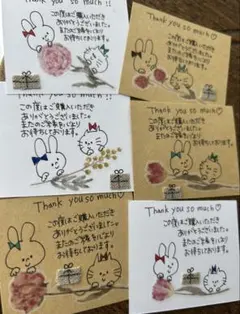 Thank you so much !!
この度はご購入いただき
ありがとうございました。
またのご縁を心より
お待ちしております。
Thank you so much♡
この度はご購入いただき
ありがとうございました。
またのご縁を心より
お待ちしております。
Thank you so much !!
この度はご購入いただき
ありがとうございました。
またのご縁を心より
お待ちしております。
Thank you so much♡
この度はご購入いただき
ありがとうございました。
またのご縁を心より
お待ちしております。
Thank you so much♡
この度はご購入いただき
ありがとうございました。
またのご縁を心より
お待ちしております。
Thank you so much♡
この度はご購入いただき
ありがとうございました。
またのご縁を心より
お待ちしております。